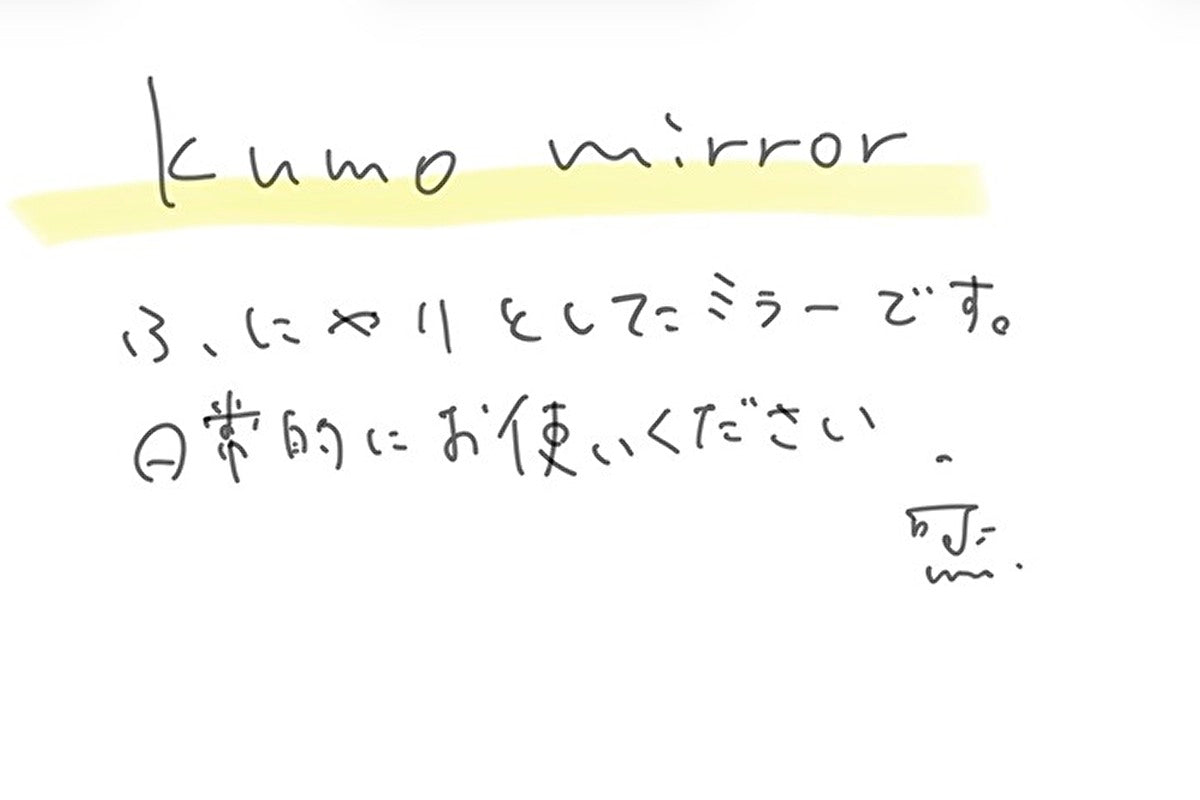 kumo mirror
ふにゃりとしてたミラーです。
日常的にお使いください